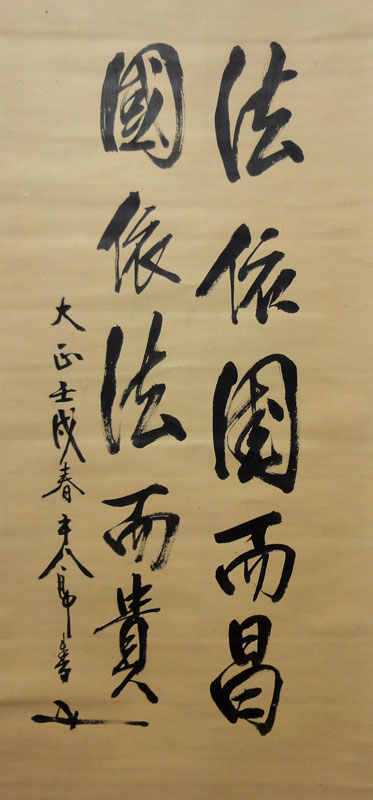 法依國而昌
國依法而貴
大正壬戌春平八郎書